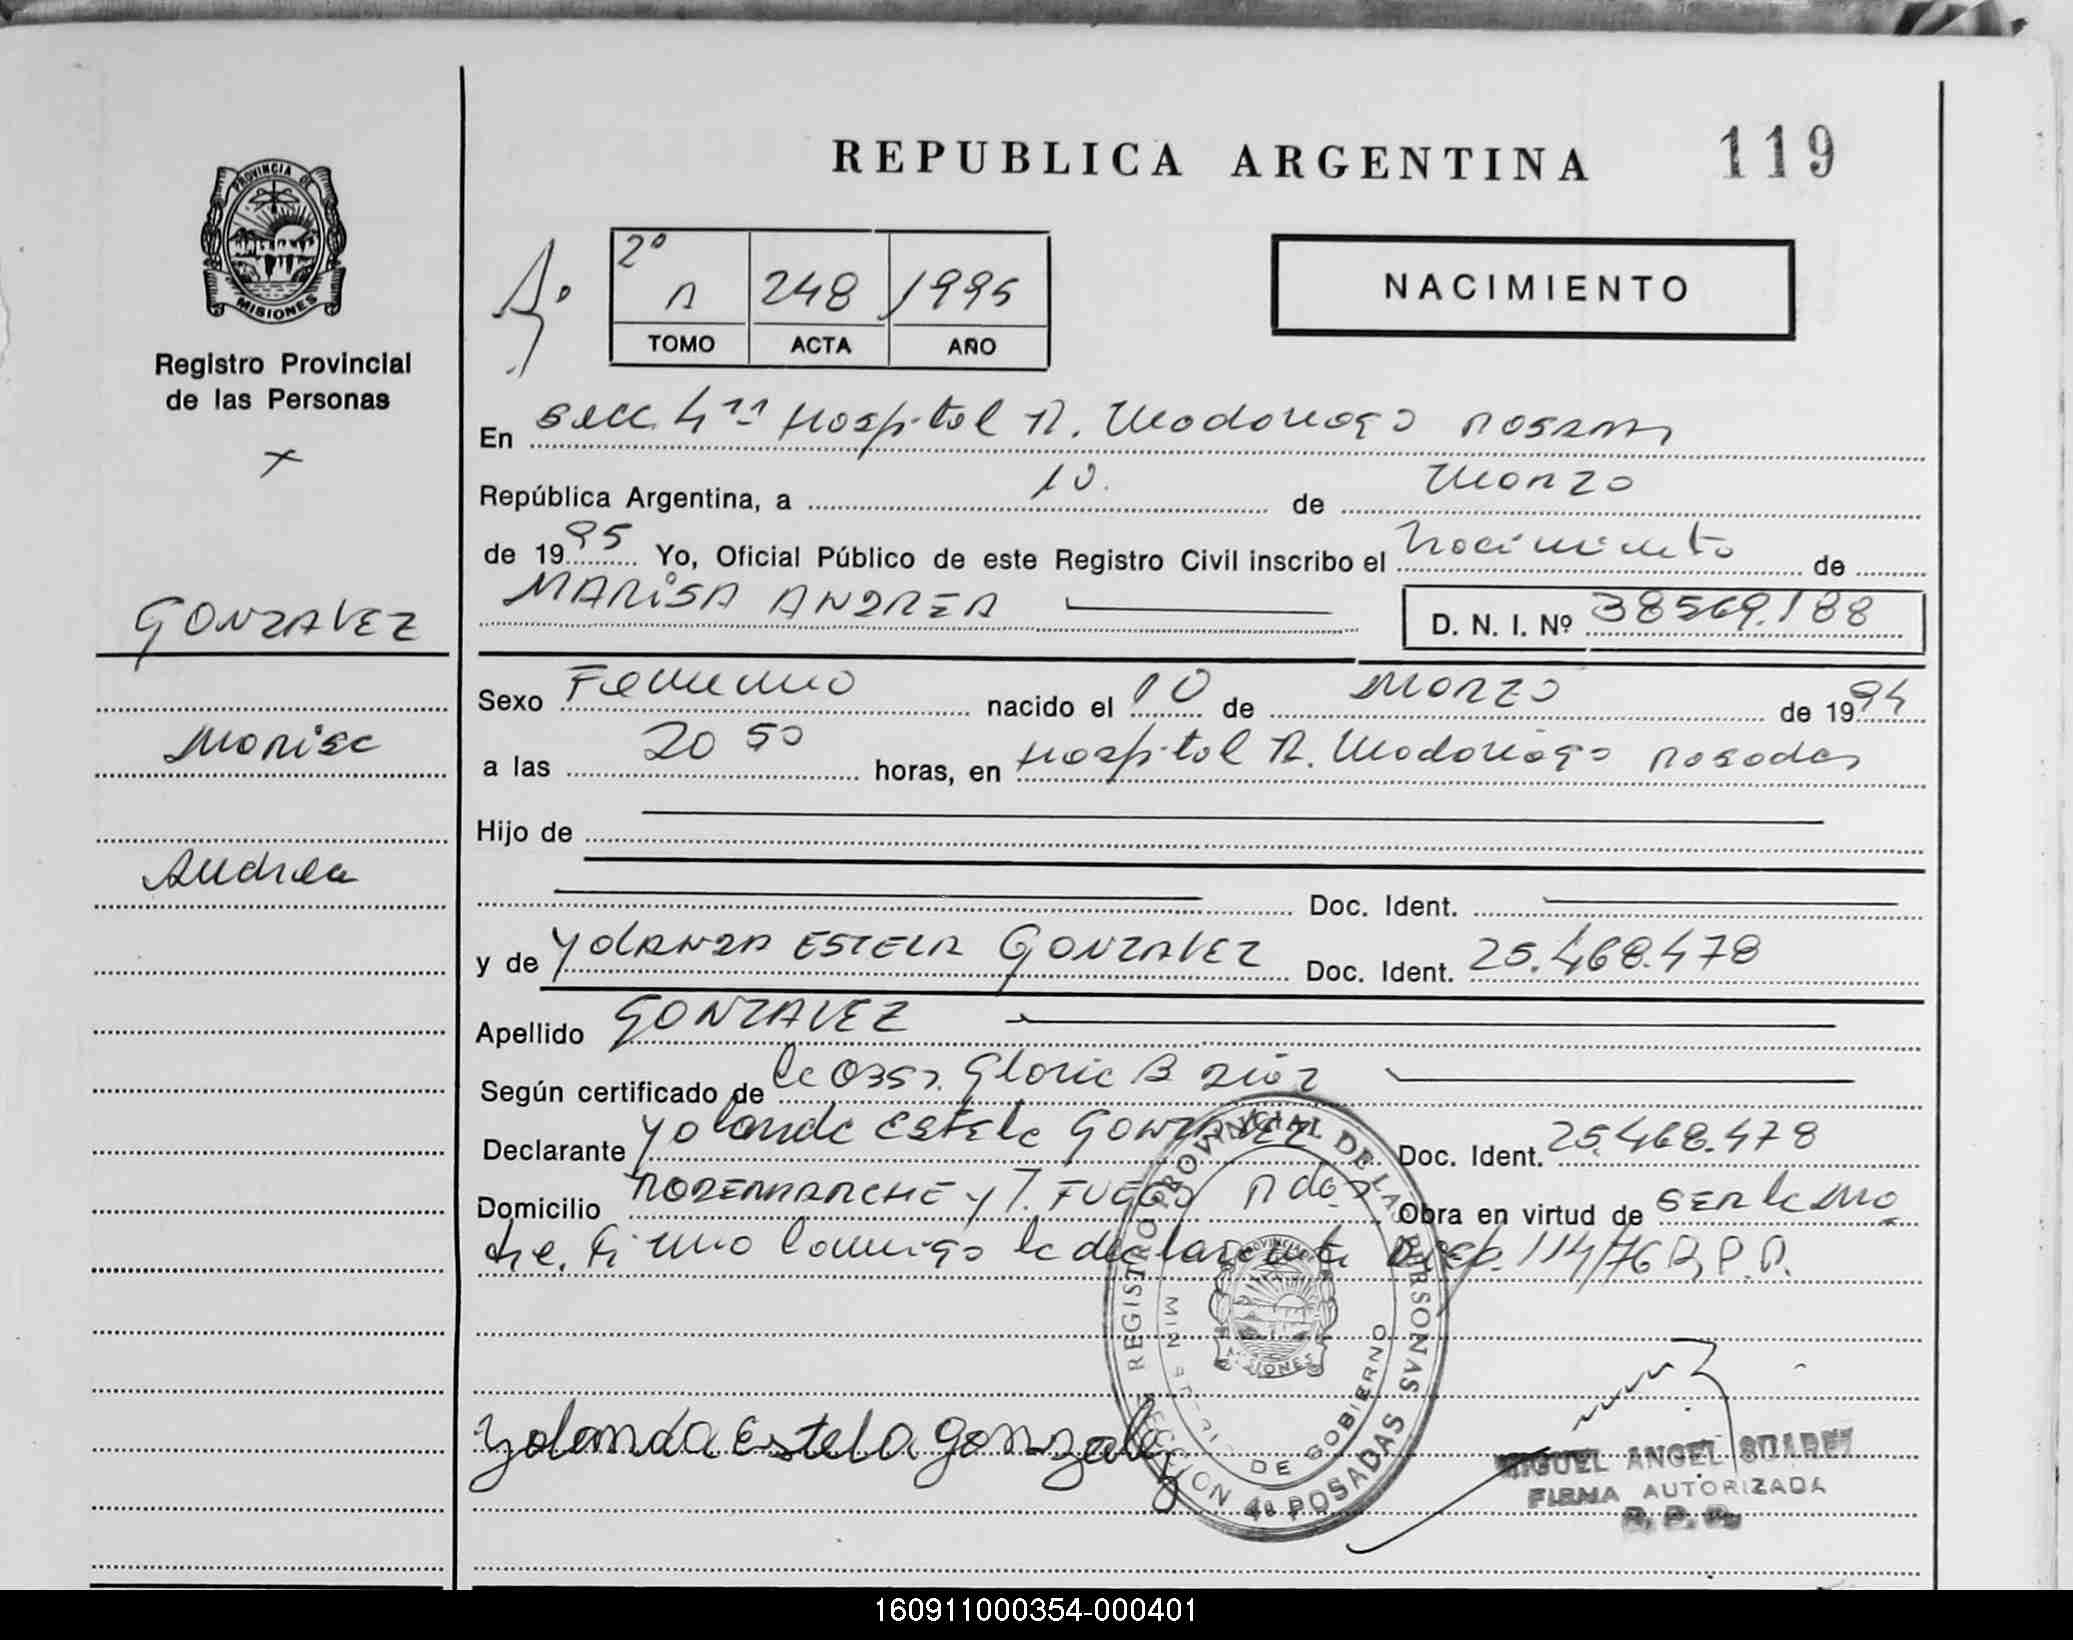 REPUBLICA ARGENTINA
119
PROVINCIA DE
MISIONES
Registro Provincial
de las Personas
2º
248
1995
TOMO
ACTA
AÑO
NACIMIENTO
En Secc. 4ta Hospital R. Madariaga Posadas
República Argentina, a 10. de Marzo
de 1995 Yo, Oficial Público de este Registro Civil inscribo el Nacimiento de
MARISA ANDREA
D. N. I. Nº 38569.188
GONZALEZ
Marisa
Andrea
Sexo Femenino nacido el 10 de Marzo de 1994
a las 20 50 horas, en Hospital R. Madariaga Posadas
Hijo de
Doc. Ident.
y de YOLANDA ESTELA GONZALEZ Doc. Ident. 25.468.478
Apellido GONZALEZ
Según certificado de la Obst. Gloria B Diaz
Declarante Yolanda Estela GONZALEZ Doc. Ident. 25.468.478
Domicilio y T. FUEGO Pdas Obra en virtud de SER la Ma
dre. Firma Conmigo la declarante Disp. 114/76 R.P.P.
REGISTRO PROVINCIAL DE LAS PERSONAS
MINISTERIO DE GOBIERNO
SECCION 4ª POSADAS
PROVINCIA DE
MISIONES
Yolanda Estela gonzalez
MIGUEL ANGEL SUAREZ
FIRMA AUTORIZADA
R. P. P.
160911000354-000401